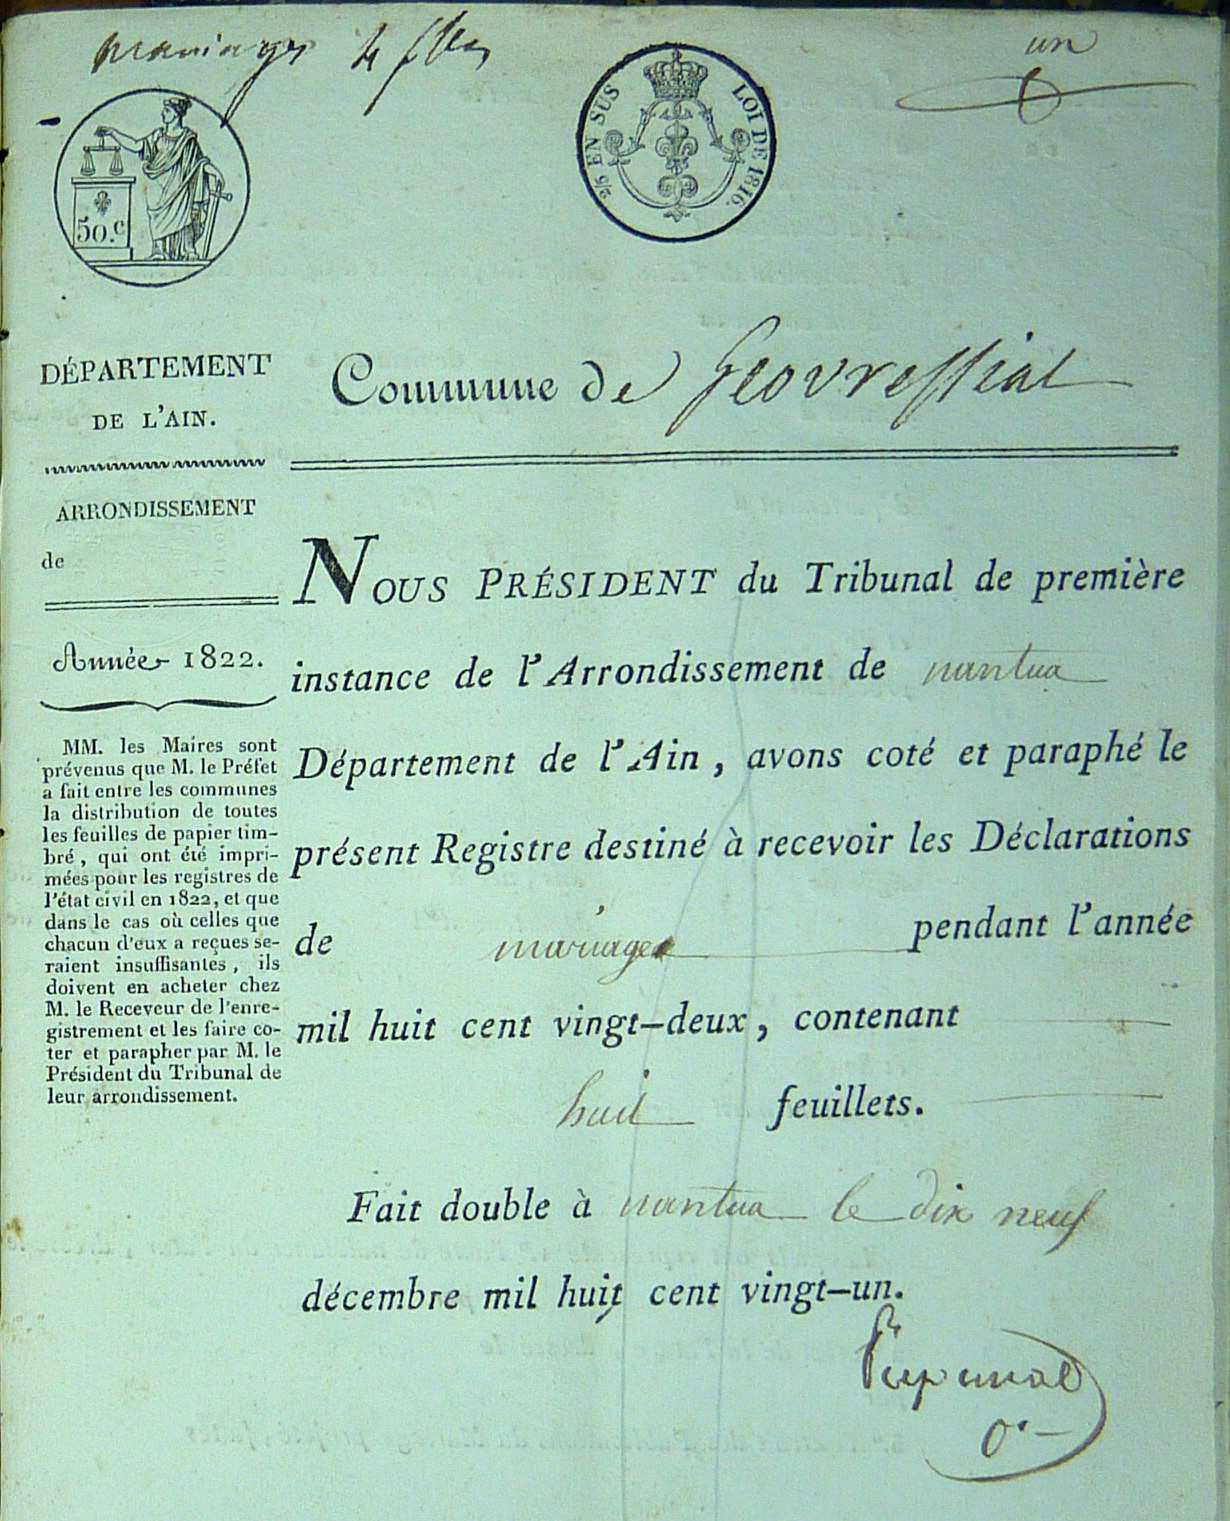 mariages 4 flles
un
2/5 EN SUS LOI DE 1816.
50.c
DÉPARTEMENT
DE L'AIN.
Commune de Geovressiat
ARRONDISSEMENT
de
Année 1822.
MM. les Maires sont
prévenus que M. le Préfet
a fait entre les communes
la distribution de toutes
les feuilles de papier tim-
bré, qui ont été impri-
mées pour les registres de
l'état civil en 1822, et que
dans le cas où celles que
chacun d'eux a reçues se-
raient insuffisantes, ils
doivent en acheter chez
M. le Receveur de l'enre-
gistrement et les faire co-
ter et parapher par M. le
Président du Tribunal de
leur arrondissement.
NOUS PRÉSIDENT du Tribunal de première
instance de l'Arrondissement de nantua
Département de l'Ain, avons coté et paraphé le
présent Registre destiné à recevoir les Déclarations
de mariages pendant l'année
mil huit cent vingt-deux, contenant
huit feuillets.
Fait double à nantua le dix neuf
décembre mil huit cent vingt-un.